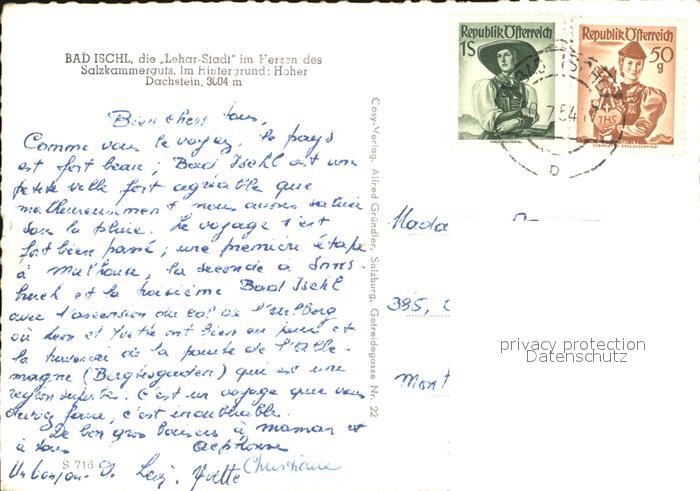 BAD ISCHL, die „Lehar-Stadt" im Herzen des
Salzkammerguts. Im Hintergrund: Hoher
Dachstein, 3004 m
Republik Österreich
1S
Republik Österreich
50
g
Bien chers tous,
Comme vous le voyez, le pays
est fort beau ; Bad Ischl est une
petite ville fort agréable que
malheureusement nous avons
sous la pluie. Le voyage s'est
fort bien passé ; une première étape
à Mulhouse, la seconde à Inns-
bruck et la troisième Bad Ischl
avec l'ascension du col de l'Arlberg
où Leon et Yvette ont bien eu peur et
la traversée de la pointe de l'Alle-
magne (Berchtesgaden) qui est une
région superbe. C'est un voyage que vous
devriez faire, c'est inoubliable.
De bons gros baisers à maman et
à tous
Alphonse
Un bonjour Yvette Christiane
S 716
Cosy-Verlag, Alfred Gründler, Salzburg, Getreidegasse Nr. 22
Mada
395,
Mont
privacy protection
Datenschutz